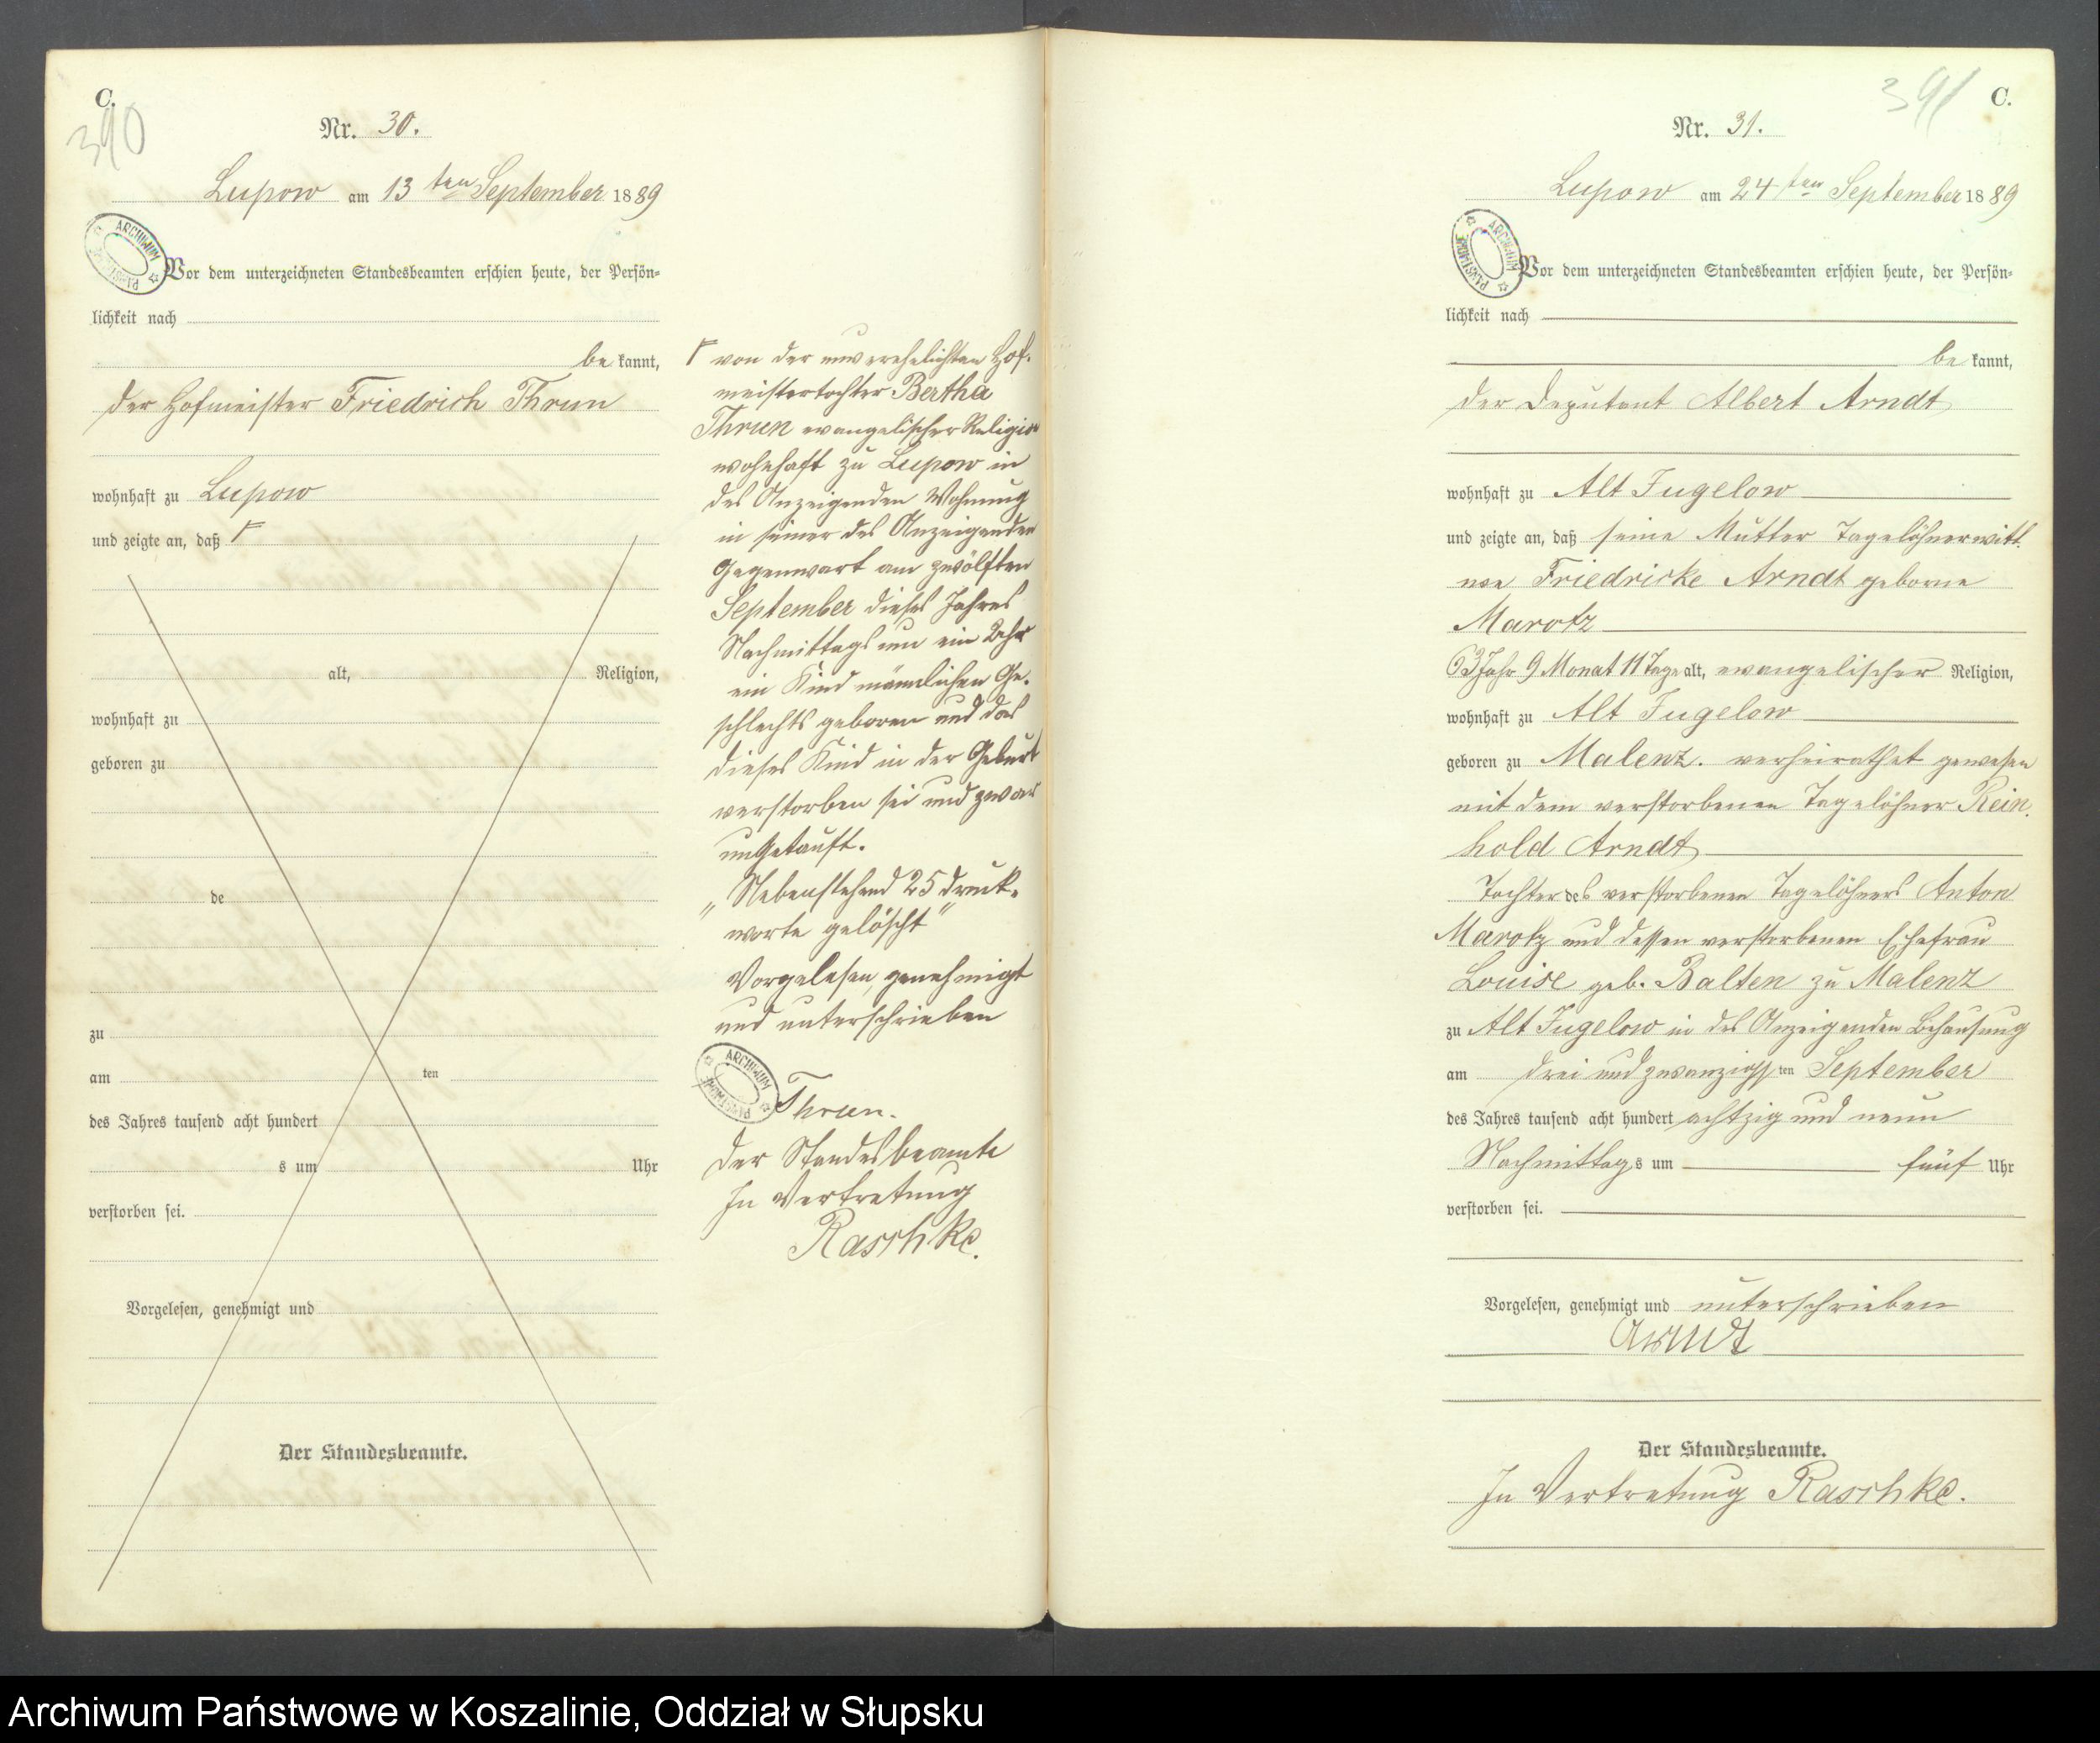 C.
390
Nr. 30.
Lupow am 13 ten September 1889
Vor dem unterzeichneten Standesbeamten erschien heute, der Persön-
lichkeit nach
be kannt,
der Hofmeister Friedrich Thrun
wohnhaft zu Lupow
und zeigte an, daß
alt, Religion,
wohnhaft zu
geboren zu
de
zu
am ten
des Jahres tausend acht hundert
s um Uhr
verstorben sei.
Vorgelesen, genehmigt und
Der Standesbeamte.
von der unverehelichten Hof-
meistertochter Bertha
Thrun evangelischer Religion
wohnhaft zu Lupow in
des Anzeigenden Wohnung
in seiner des Anzeigenden
Gegenwart am zwölften
September dieses Jahres
Nachmittags um ein Uhr
ein Kind männlichen Ge-
schlechts geboren und das
dieses Kind in der Geburt
verstorben sei und zwar
ungetauft.
„Nebenstehend 25 Druck-
worte gelöscht"
Vorgelesen, genehmigt
und unterschrieben
ARCHIWUM PAŃSTWOWE
Thrun.
Der Standesbeamte
In Vertretung
Raschke.
391
C.
Nr. 31.
Lupow am 24 ten September 1889
ARCHIWUM PAŃSTWOWE
Vor dem unterzeichneten Standesbeamten erschien heute, der Persön-
lichkeit nach
be kannt,
der Deputant Albert Arndt
wohnhaft zu Alt Jugelow
und zeigte an, daß seine Mutter Tagelöhnerwitt-
we Friedricke Arndt geborne
Marotz
63 Jahr 9 Monat 11 Tage alt, evangelischer Religion,
wohnhaft zu Alt Jugelow
geboren zu Malenz. verheirathet gewesen
mit dem verstorbenen Tagelöhner Rein-
hold Arndt
Tochter des verstorbenen Tagelöhners Anton
Marotz und dessen verstorbenen Ehefrau
Louise geb. Balten zu Malenz
zu Alt Jugelow in des Anzeigenden Behausung
am drei und zwanzigsten September
des Jahres tausend acht hundert achtzig und neun
Nachmittags um fünf Uhr
verstorben sei.
Vorgelesen, genehmigt und unterschrieben
Arndt
Der Standesbeamte.
In Vertretung Raschke.
Archiwum Państwowe w Koszalinie, Oddział w Słupsku